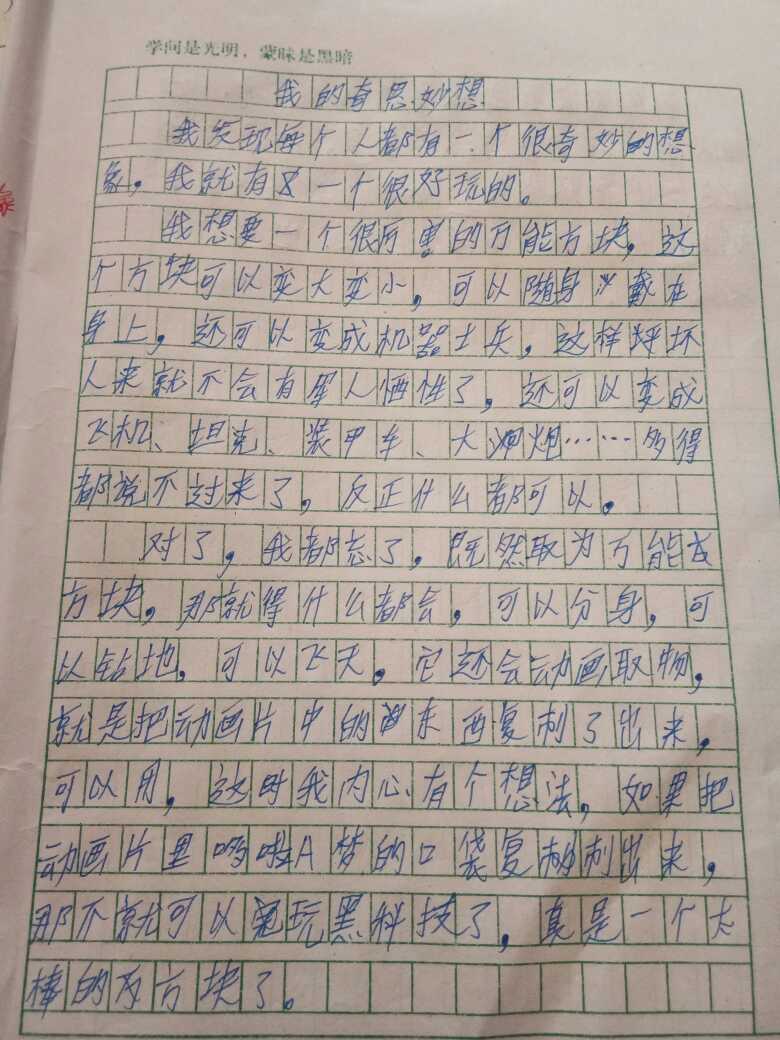 学问是光明，蒙昧是黑暗
我的奇思妙想
我发现每个人都有一个很奇妙的想
象，我就有一个很好玩的。
我想要一个很厉害的万能方块，这
个方块可以变大变小，可以随身戴在
身上，还可以变成机器士兵，这样坏
人来就不会有军人牺牲了，还可以变成
飞机、坦克、装甲车、大炮……多得
都说不过来了，反正什么都可以。
对了，我都忘了，既然取为万能
方块，那就得什么都会，可以分身，可
以钻地，可以飞天。它还会动画取物，
就是把动画片中的东西复制了出来，
可以用，这时我内心有个想法，如果把
动画片里哆啦A梦的口袋复制出来，
那不就可以玩黑科技了，真是一个太
棒的方块了。